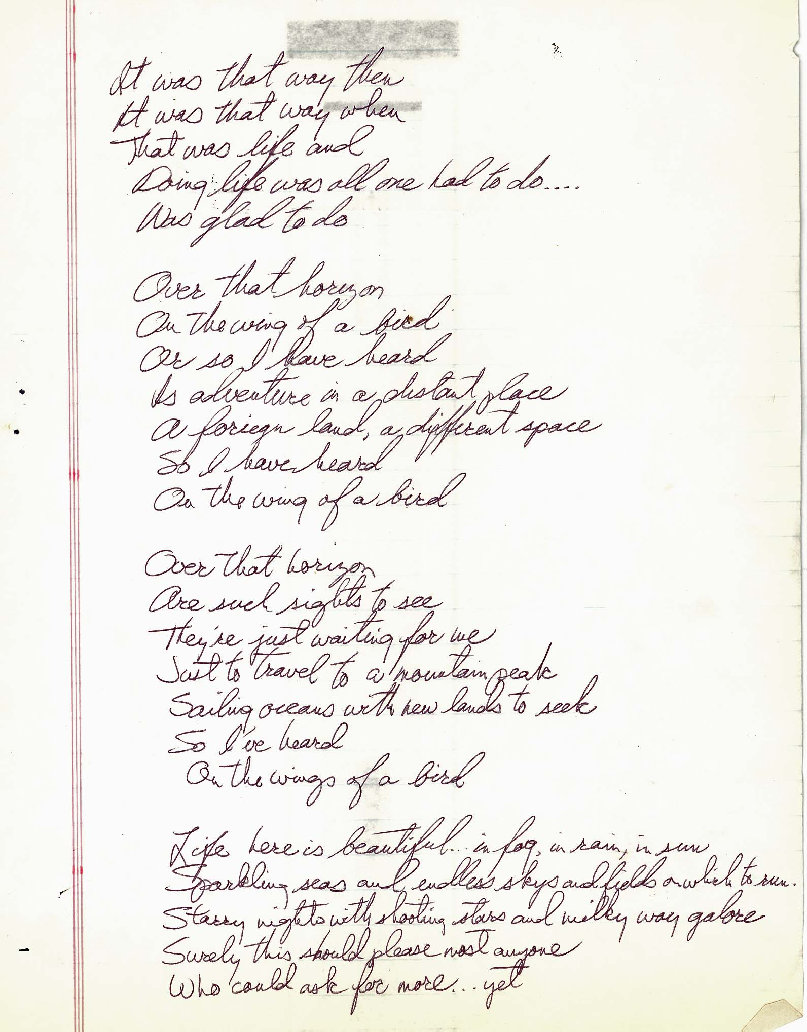 It was that way then
It was that way when
That was life and
Doing life was all one had to do....
Was glad to do
Over that horizon
On the wing of a bird
Or so I have heard
Is adventure in a distant place
A foriegn land, a different space
So I have heard
On the wing of a bird
Over that horizon
Are such sights to see
They're just waiting for me
Just to travel to a mountain peak
Sailing oceans with new lands to seek
So I've heard
On the wings of a bird
Life here is beautiful... in fog, in rain, in sun
Sparkling seas and endless skys and fields on which to run.
Starry nights with shooting stars and milky way galore
Surely this should please most anyone
Who could ask for more... yet